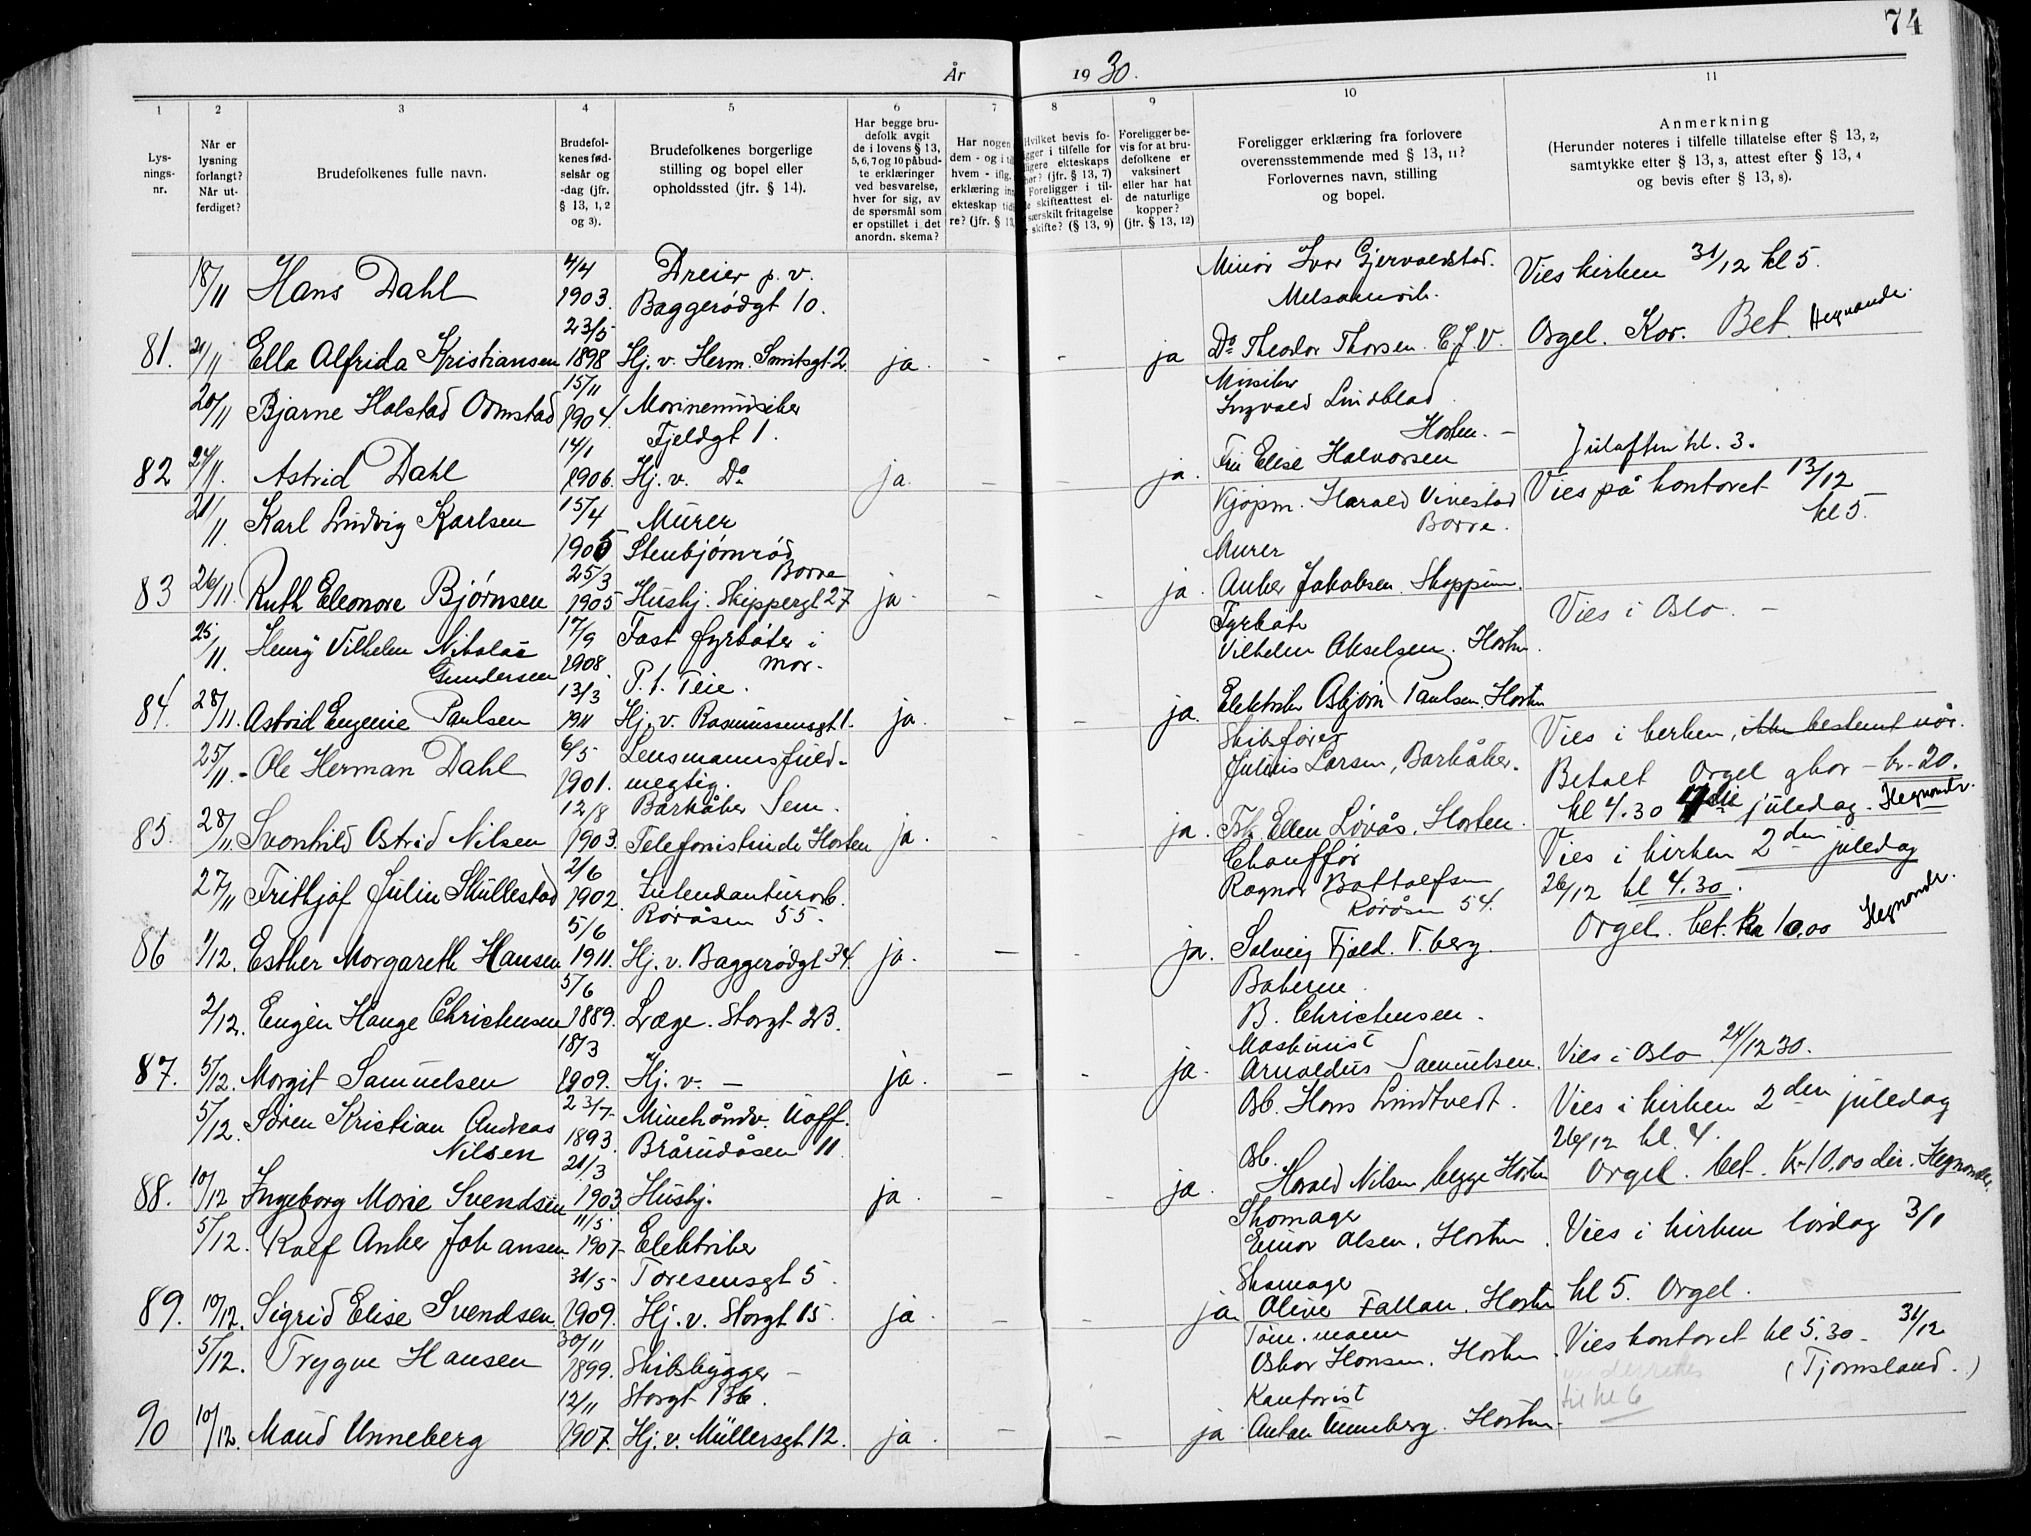 74
År 1930.
1 2 3 4 5 6 7 8 9 10 11
Lysningsnr.
Når er lysning forlangt? Når utferdiget?
Brudefolkenes fulle navn.
Brudefolkenes fødselsår og -dag (jfr. § 13, 1, 2 og 3).
Brudefolkenes borgerlige stilling og bopel eller opholdssted (jfr. § 14).
Har begge brudefolk avgit de i lovens § 13, 5, 6, 7 og 10 påbudte erklæringer ved besvarelse, hver for sig, av de spørsmål som er opstillet i det anordn. skema?
Har nogen dem - og i til hvem - iflg. erklæring in ekteskap tid re? (jfr. § 13,
Hvilket bevis fo- gger i tilfelle for ligere ekteskaps hør? (jfr. § 13, 7) Foreligger i til- e skifteattest el- særskilt fritagelse skifte? (§ 13, 9)
Foreligger bevis for at brudefolkene er vaksinert eller har hat de naturlige kopper? (jfr. § 13, 12)
Foreligger erklæring fra forlovere overensstemmende med § 13, 11? Forlovernes navn, stilling og bopel.
Anmerkning
(Herunder noteres i tilfelle tillatelse efter § 13, 2, samtykke efter § 13, 3, attest efter § 13, 4 og bevis efter § 13, 8).
18/11 Hans Dahl 4/4 1903. Dreier p. v. Baggerødgt 10. Minør Ivar Melsomvik. Vies kirken 31/12 kl 5.
81. 21/11 Ella Alfrida Kristiansen 23/5 1898 Hj. v. Herm. Smitsgt. 2 ja. - - ja Do Theodor Thorsen. E.J.V. Orgel. Kor. Bet. Hegnander.
20/11 Bjarne Halstad Ormstad 15/11 1904. Marinemusiker Fjeldgt 1. Musiker Ingvald Lindblad Horten. -
82 24/11. Astrid Dahl 14/1 1906. Hj. v. Do ja. - - ja. Fru Elise Halvorsen Julaften kl. 3.
21/11 Karl Ludvig Karlsen 15/4 1905 Murer Stenbjørnrød Borre Kjøpm. Harald Vivestad Borre. Vies på kontoret 13/12 kl 5.
83 26/11. Ruth Eleonore Bjørnsen 25/3 1905 Hushj. Skippergt 27 ja. - - ja. Murer Anker Jakobsen Skoppum.
25/11. Henry Vilhelm Nikolai Gundersen 17/9 1908 Fast fyrbøter i mar. P. t. Teie. Fyrbøt. Vilhelm Akselsen. Horten. Vies i Oslo. -
84. 28/11. Astrid Eugenie Paulsen 13/3 1911 Hj. v. Rasmussensgt 1. ja. - - ja. Elektriker Asbjørn Paulsen. Horten
25/11. - Ole Herman Dahl 6/5 1901. Lensmannsfuldmegtig. Barkåker Sem. Skibsfører Julius Larsen, Barkåker. Vies i kirken, ikke bestemt når.
Betalt Orgel kr. 20. kl 4.30 juledag. Hegnander.
85. 28/11 Svanhild Astrid Nilsen 12/8 1903. Telefonistinde Horten ja. ja. Frk. Ellen Løvås. Horten.
27/11 Frithjof Julin Skullestad 2/6 1902. Intendanturarb. Røråsen 55. Chauffør Ragnar Battolfsen Røråsen 54. Vies i kirken 2den juledag 26/12 kl 4.30.
86 1/12. Esther Margareth Hansen 5/6 1911. Hj. v. Baggerødgt 34. ja. - - ja. Solveig Fjeld. T.berg. Orgel. bet. Kr 10.00 Hegnander.
2/12. Eugén Hauge Christensen 5/6 1889. Læge. Storgt. 23. B. Christensen.
87. 5/12. Margit Samuelsen 18/3 1909. Hj. v. - ja. - - ja. Maskinist Arnoldus Samuelsen. Vies i Oslo 24/12 30.
5/12. Søren Kristian Andreas Nilsen 23/7 1893 Minehåndv. Uoff. Brårudåsen 11. Arb. Hans Lindtvedt. Vies i kirken 2den juledag 26/12 kl. 4.
88. 10/12 Ingeborg Marie Svendsen 21/3 1903 Hushj. ja. - - ja. Arb. Harald Nilsen begge Horten Orgel. bet. Kr. 10.00 Hegnander.
5/12. Ralf Anker Johansen. 11/5 1907. Elektriker Toresensgt 5. Skomager Einar Olsen. Horten. Vies i kirken lördag 3/1 kl 5. Orgel.
89. 10/12. Sigrid Elise Svendsen. 31/5 1909. Hj. v. Storgt 15 ja. - - ja. Skomager Oliver Fallan. Horten
5/12. Trygve Hansen 30/11 1899. Skibsbygger - Storgt 136. Töm.mann Oskar Hansen. Horten. Vies kontoret kl 5.30 - 31/12 (Tjomsland.)
til kl 6
90 10/12. Maud Unneberg 12/11 1907. Hj. v. Müllersgt 12. ja. - - ja. Kontorist Anton Unneberg. Horten.